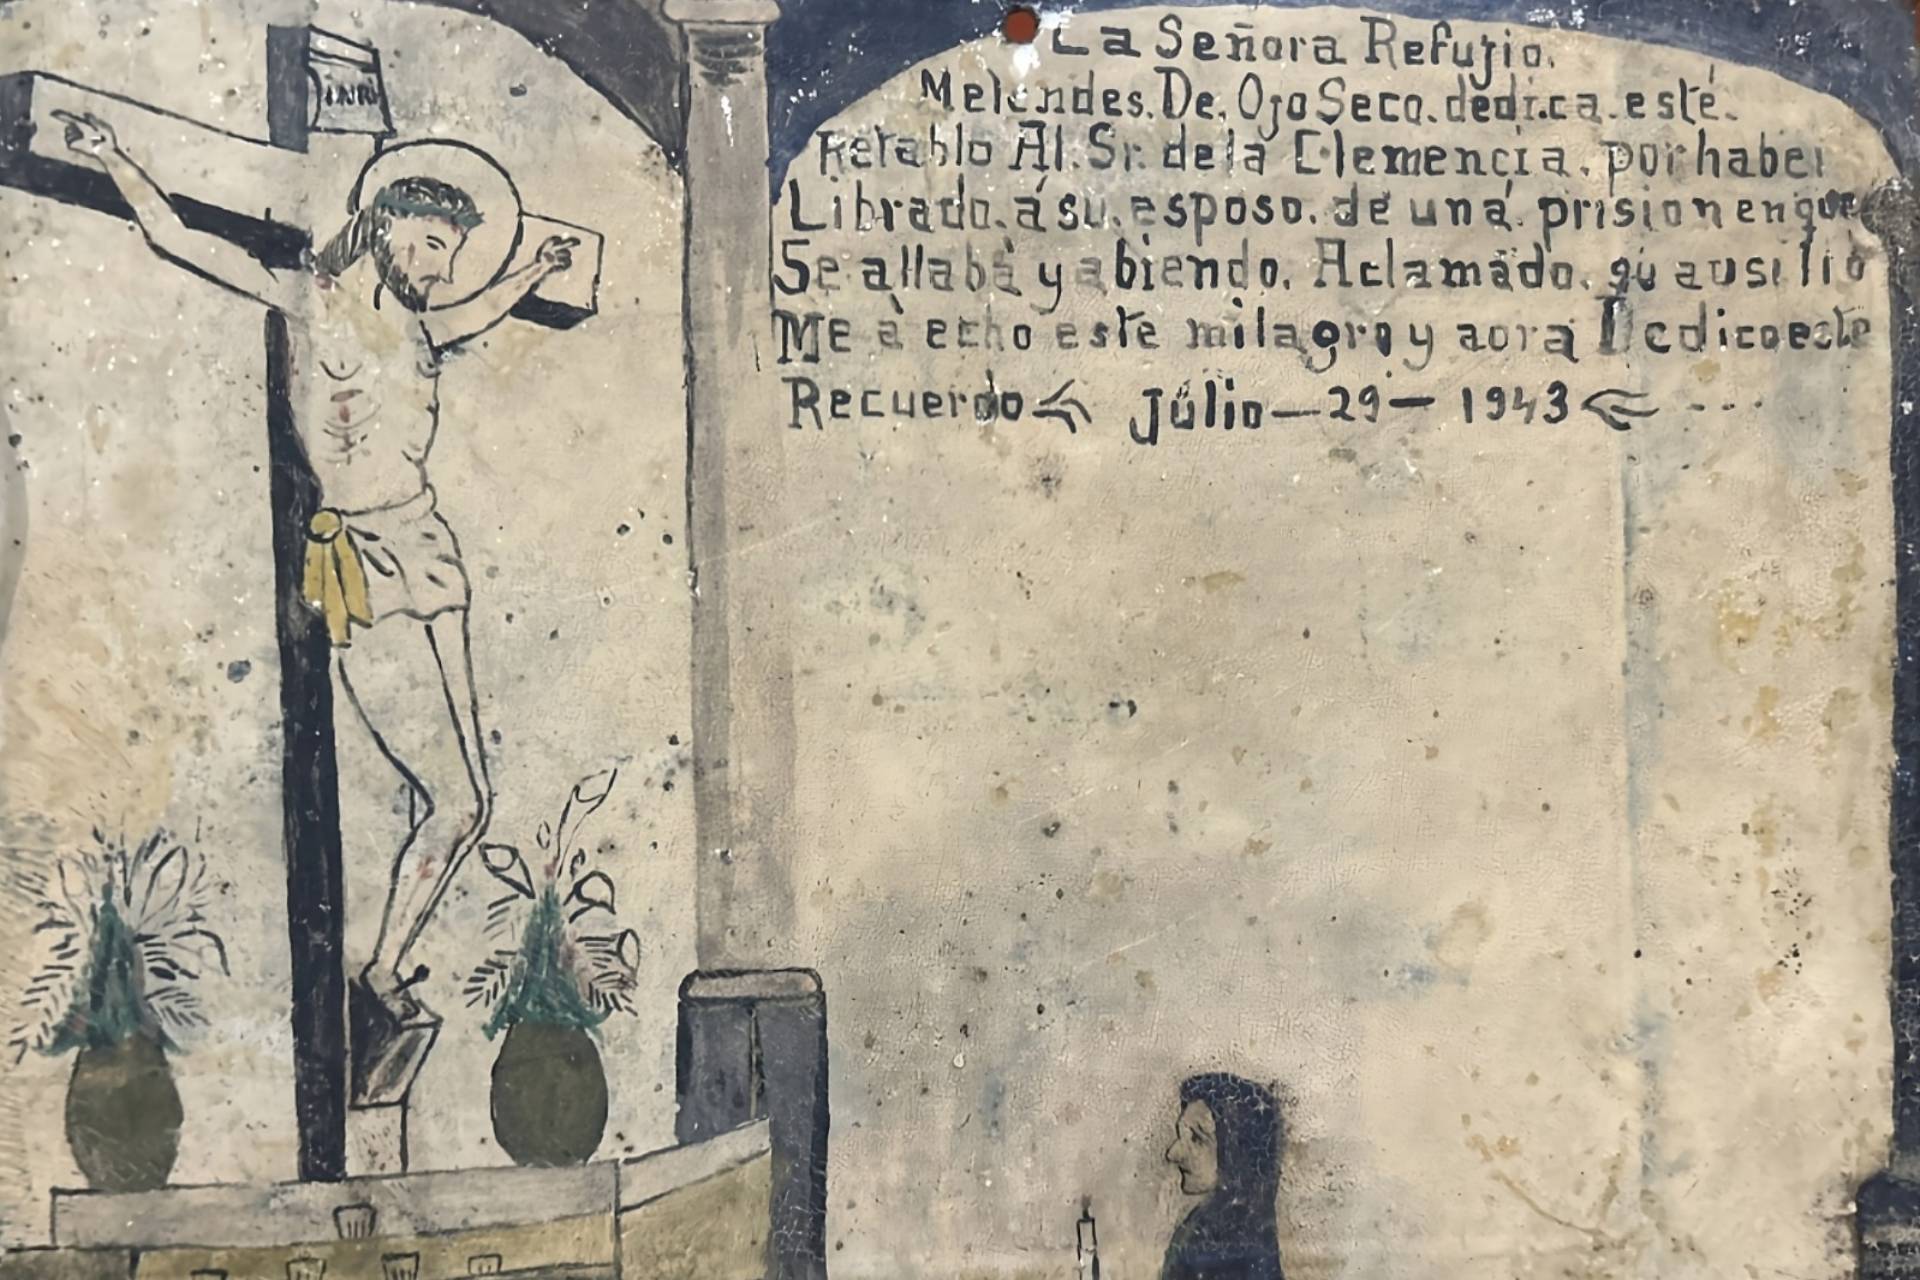 INRI
La Señora Refujio.
Melendes. De. Ojo Seco. dedica. esté.
Retablo Al. Sr. de la Clemencia. por haber
Librado. á su. esposo. de uná. prision en que
Se allaba y abiendo. Aclamado. su ausilio
Me à echo este milagro y aora Dedico este
Recuerdo Júlio — 29 — 1943